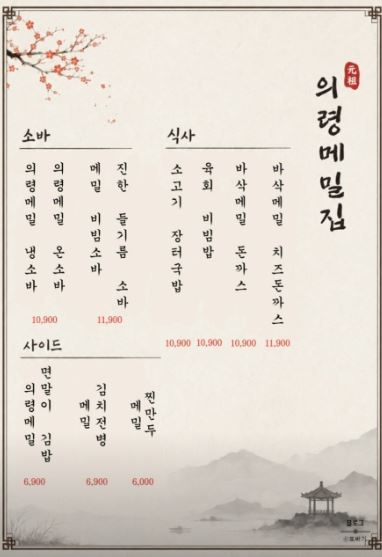 元祖
의령메밀집
소바
의령메밀 냉소바
의령메밀 온소바
메밀 비빔소바
진한 들기름 소바
10,900
11,900
식사
소고기 장터국밥
육회 비빔밥
바삭메밀 돈까스
바삭메밀 치즈돈까스
10,900
10,900
10,900
11,900
사이드
의령메밀
면말이 김밥
메밀
김치전병
메밀
찐만두
6,900
6,900
6,000
블로그